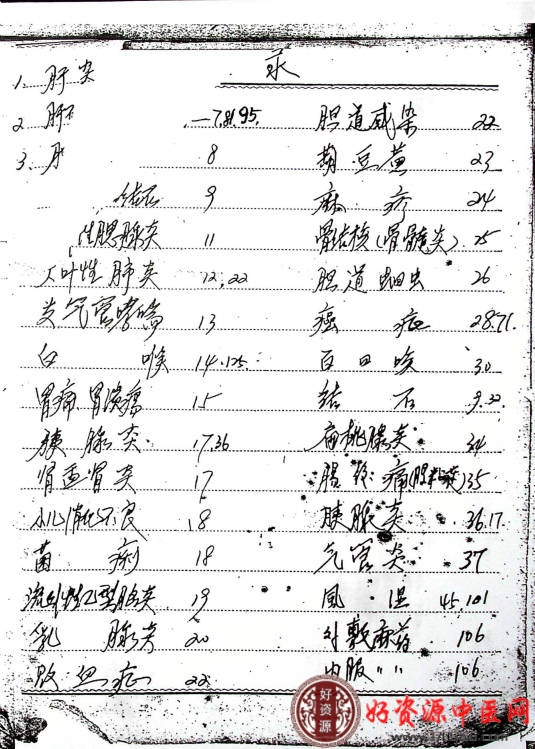 录
1. 肝炎
2. 肝 一7.81.95.
3. 月 8
结石 9
性腮腺炎 11
大叶性肺炎 12,22
支气官哮喘 13
白喉 14.125.
胃痛 胃溃疡 15
胰腺炎 17.36
肾盂肾炎 17
小儿消化不良 18
菌痢 18
流行性乙型脑炎 19
乳腺炎 20
败血症 22
胆道感染 22
胡豆黄 23
麻疹 24
骨结核(骨髓炎) 25
胆道蛔虫 26
癌症 28.71.
百日咳 30
结石 9.32
扁桃腺炎 34
痛 35
胰腺炎 36.17.
气官炎 37
风湿 45.101
外敷麻药 106
内服〃〃 106
好资源
好资源中医网